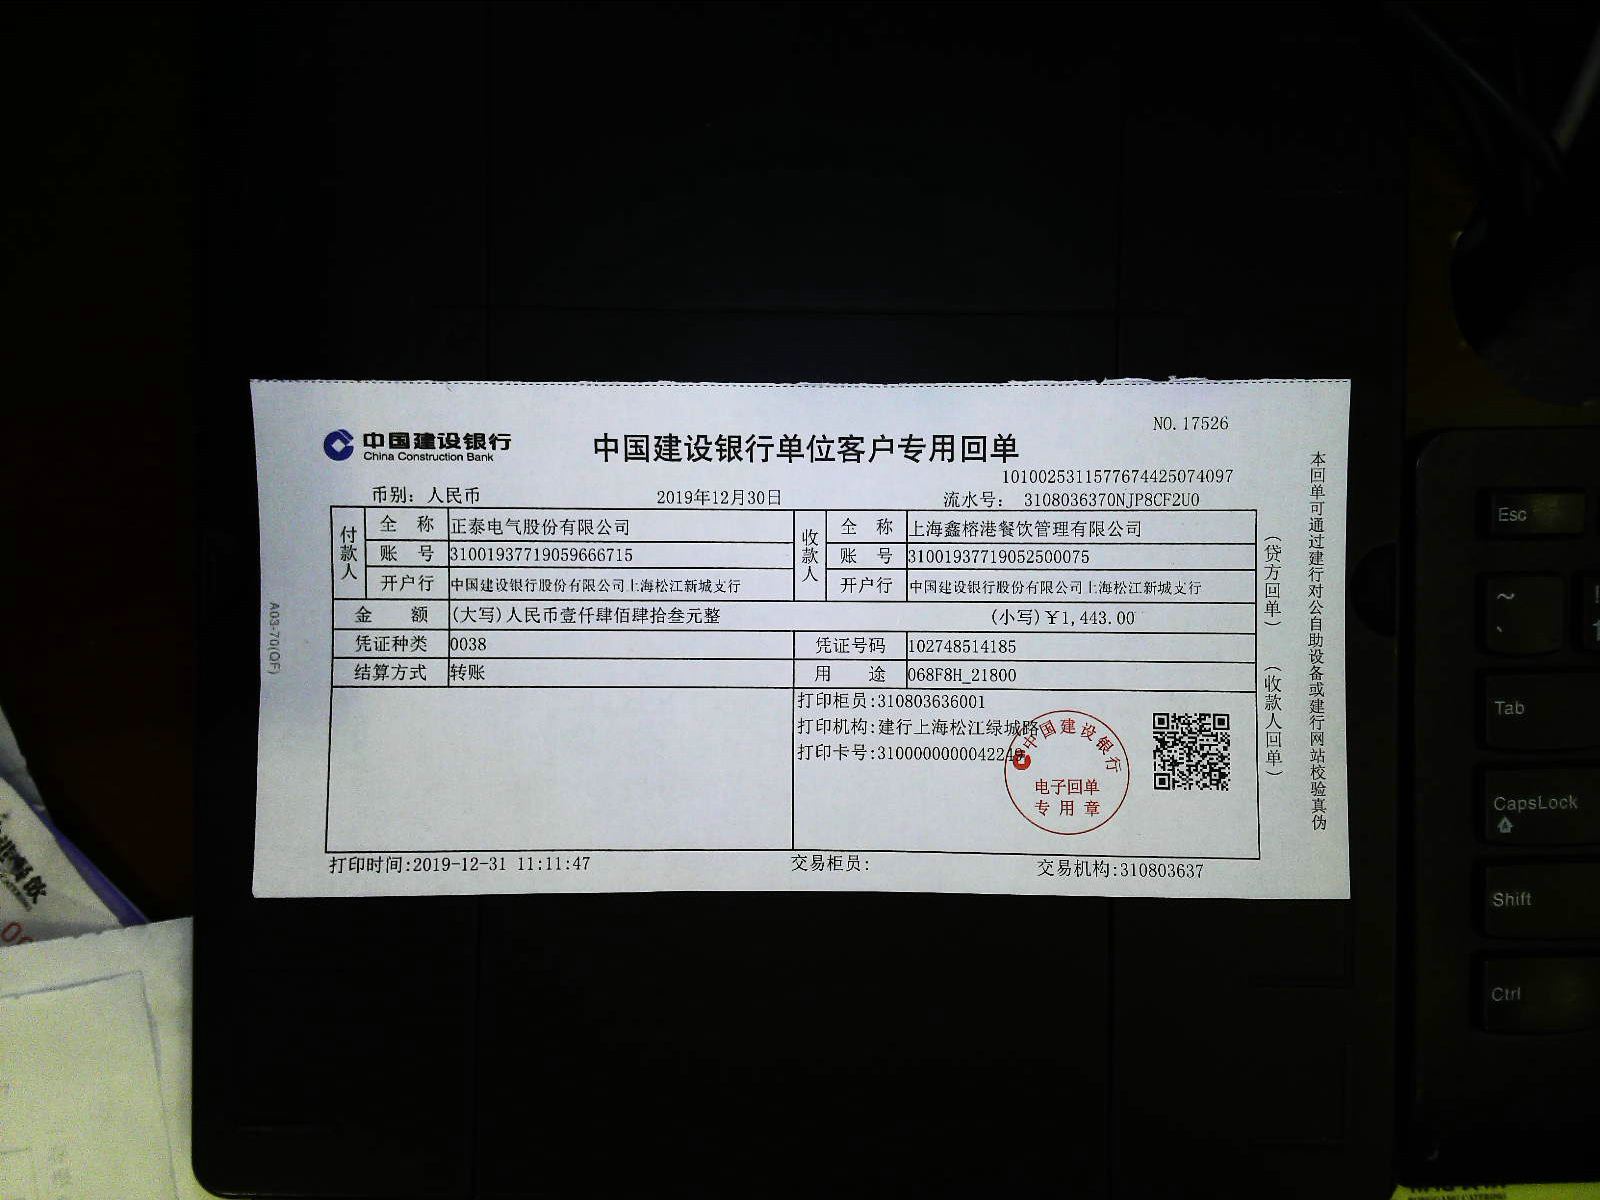 NO.17526
中国建设银行
China Construction Bank
中国建设银行单位客户专用回单
1010025311577674425074097
币别：人民币 2019年12月30日 流水号： 3108036370NJP8CF2U0
付款人 全 称 正泰电气股份有限公司 收款人 全 称 上海鑫榕港餐饮管理有限公司
账 号 31001937719059666715 账 号 31001937719052500075
开户行 中国建设银行股份有限公司上海松江新城支行 开户行 中国建设银行股份有限公司上海松江新城支行
金 额 (大写)人民币壹仟肆佰肆拾叁元整 (小写)￥1,443.00
凭证种类 0038 凭证号码 102748514185
结算方式 转账 用 途 068F8H_21800
打印柜员:310803636001
打印机构:建行上海松江绿城路
打印卡号:310000000004224
中国建设银行
电子回单
专用章
打印时间:2019-12-31 11:11:47 交易柜员: 交易机构:310803637
（贷方回单）
（收款人回单）
本回单可通过建行对公自助设备或建行网站校验真伪
A03-70(QF)
Esc
~
Tab
CapsLock
Shift
Ctrl